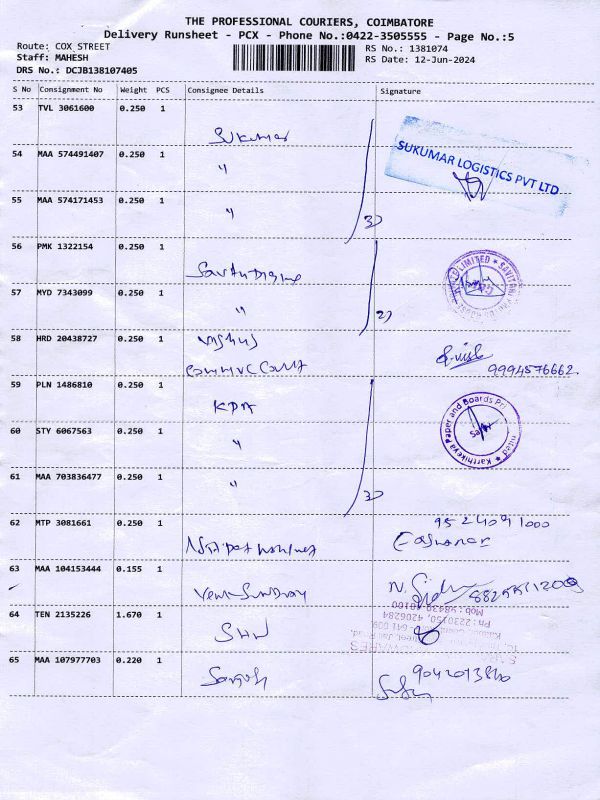 THE PROFESSIONAL COURIERS, COIMBATORE
Delivery Runsheet - PCX - Phone No.:0422-3505555 - Page No.:5
Route: COX STREET
RS No.: 1381074
Staff: MAHESH
RS Date: 12-Jun-2024
DRS No.: DCJB138107405
S No Consignment No Weight PCS Consignee Details Signature
53 TVL 3061600 0.250 1
Sukumar
54 MAA 574491407 0.250 1
"
SUKUMAR LOGISTICS PVT LTD
55 MAA 574171453 0.250 1
"
3)
56 PMK 1322154 0.250 1
57 MYD 7343099 0.250 1
"
2)
58 HRD 20438727 0.250 1
9994576662
59 PLN 1486810 0.250 1
KPA
60 STY 6067563 0.250 1
"
61 MAA 703836477 0.250 1
"
3)
62 MTP 3081661 0.250 1
9524091000
63 MAA 104153444 0.155 1
64 TEN 2135226 1.670 1
Mob : 98430 40100
Ph : 2230150, 4206284
65 MAA 107977703 0.220 1